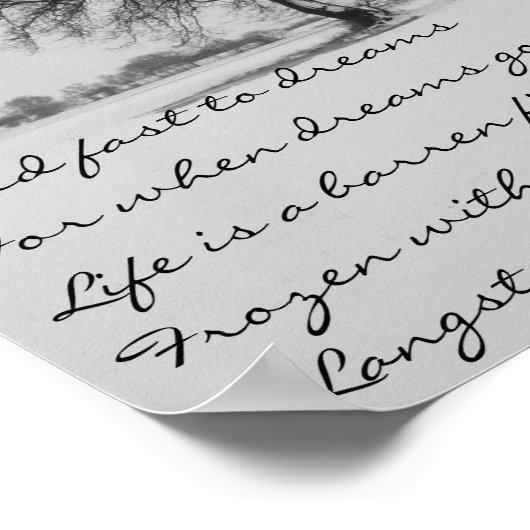 fast to dreams
For when dreams go
Life is a barren
Frozen with
Langst